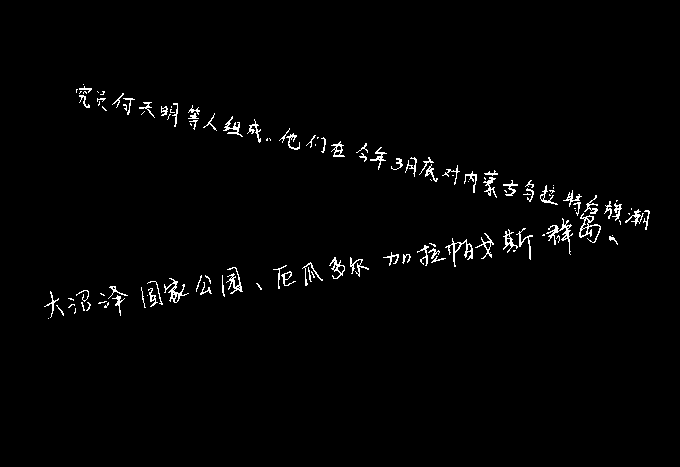 究员何天明等人组成。他们在今年3月底对内蒙古乌拉特后旗潮
大沼泽国家公园、厄瓜多尔加拉帕戈斯群岛。